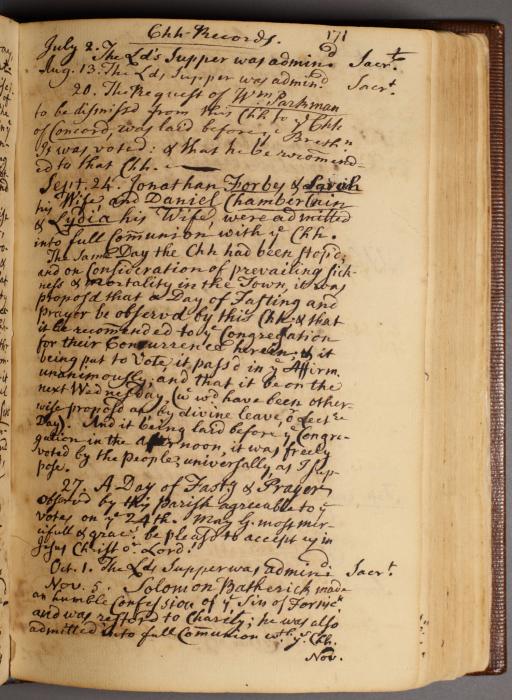 Chh-Records. 171
July 2. The Ld's Supper was admind Sacrt.
Aug. 13. The Lds Supper was admind Sacrt.
20. The Request of Wm. Parkman
to be dismissed from this Chh to ye Chh
of Concord, was laid before ye Brethn
It was voted: & that he be recomend-
ed to that Chh.
Sept. 24. Jonathan Forby & Sarah
his Wife, and Daniel Chamberlain
& Lydia his Wife, were admitted
into full Comunion with ye Chh.
The Same Day the Chh had been stopd;
and on Consideration of prevailing sick-
ness & mortality in the Town, it was
proposd that a Day of Fasting and
prayer be observd by this Chh & that
it be recomended to ye Congregation
for their Concurrence herein. & it
being put to Vote, it pass'd in ye Affirm.
unanimously; and that it be on the
next Wednesday (wc wd have been other-
wise proposd as by divine leave, or Lectre
Day). And it being laid before ye Congre-
gation in the Afternoon, it was freely
voted by the People; universally, as I sup-
pose.
27. A Day of Fastg & Prayer
observd by this Parish agreeable to ye
votes on ye 24th. May G. most mer-
cifull & graco. be pleasd to accept us in
Jesus Christ or. Lord!
Oct. 1. The Lds Supper was admind. Sacrt.
Nov. 5. Solomon Batherick made
an humble Confession of ye Sin of Fornicn
and was restord to Charity; he was also
admitted into full Comunion wth. ye Chh.
Nov.